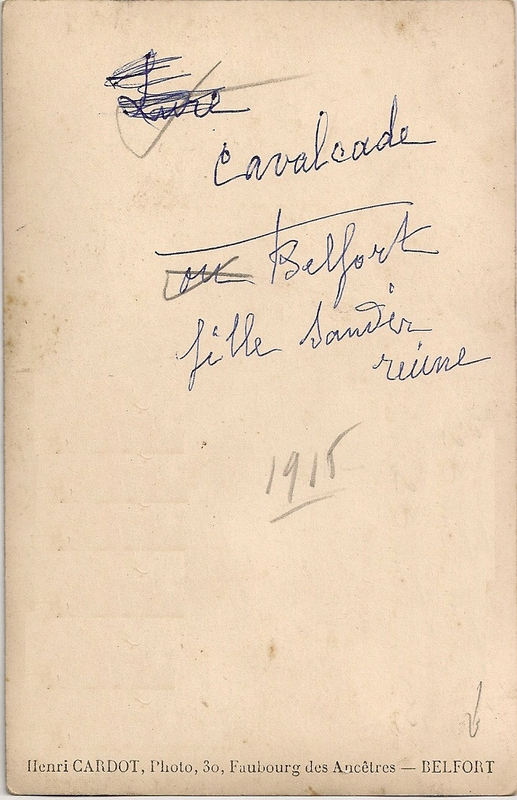 Lure
Cavalcade
ou Belfort
fille Sandér
reüne
1915
Henri CARDOT, Photo, 30, Faubourg des Ancêtres — BELFORT